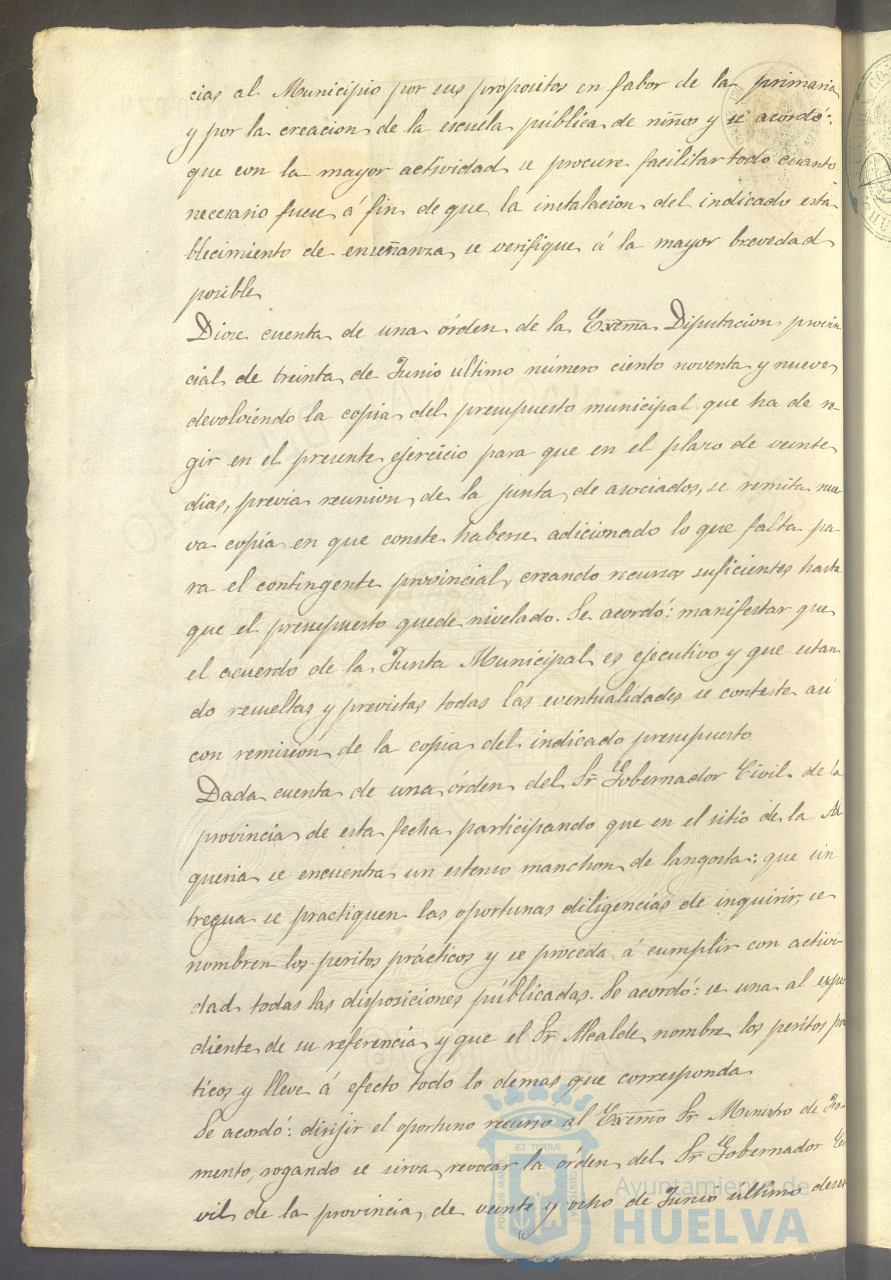 cias al Municipio por sus propositos en fabor de la primaria
y por la creacion de la escuela pública de niños y se acordó:
que con la mayor actividad se procure facilitar todo cuanto
necesario fuese á fin de que la instalacion del indicado esta-
blecimiento de enseñanza, se verifique á la mayor brevedad
posible
Diose cuenta de una órden de la Exma Diputacion provin
cial de treinta de Junio ultimo número ciento noventa y nueve
devolviendo la copia del presupuesto municipal que ha de re-
gir en el presente ejercicio para que en el plazo de veinte
dias, previa reunion de la junta de asociados, se remita nue
va copia en que conste haberse adicionado lo que falta pa-
ra el contingente provincial, creando recursos suficientes hasta
que el presupuesto quede nivelado. Se acordó: manifestar que
el acuerdo de la Junta Municipal es ejecutivo y que estan
do resueltas y previstas todas las eventualidades se conteste asi
con remision de la copia del indicado presupuesto
Dada cuenta de una órden del Sr. Gobernador Civil de la
provincia de esta fecha participando que en el sitio de la Al
queria se encuentra un estenso manchon de langosta: que sin
tregua se practiquen las oportunas diligencias de inquirir, se
nombren los peritos prácticos y se proceda á cumplir con activi-
dad todas las disposiciones públicadas. Se acordó: se una al espe
diente de su referencia y que el Sr. Alcalde nombre los peritos prá
ticos y lleve á efecto todo lo demas que corresponda
Se acordó: dirijir el oportuno recurso al Exmo Sr. Ministro de Fo-
mento, rogando se sirva revocar la órden del Sr. Gobernador Ci
vil de la provincia de veinte y ocho de Junio ultimo
PORTUS MARIS
ET TERRÆ
CUSTODIA
Ayuntamiento de
HUELVA